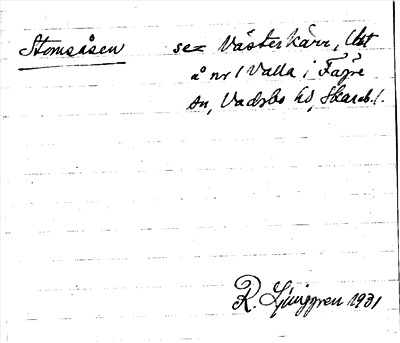 Stomsåsen se= Västerkärr, Utst
å nr 1 Valla i Fägre
sn, Vadsbo hd, Skarab.l.
R. Ljunggren 1931